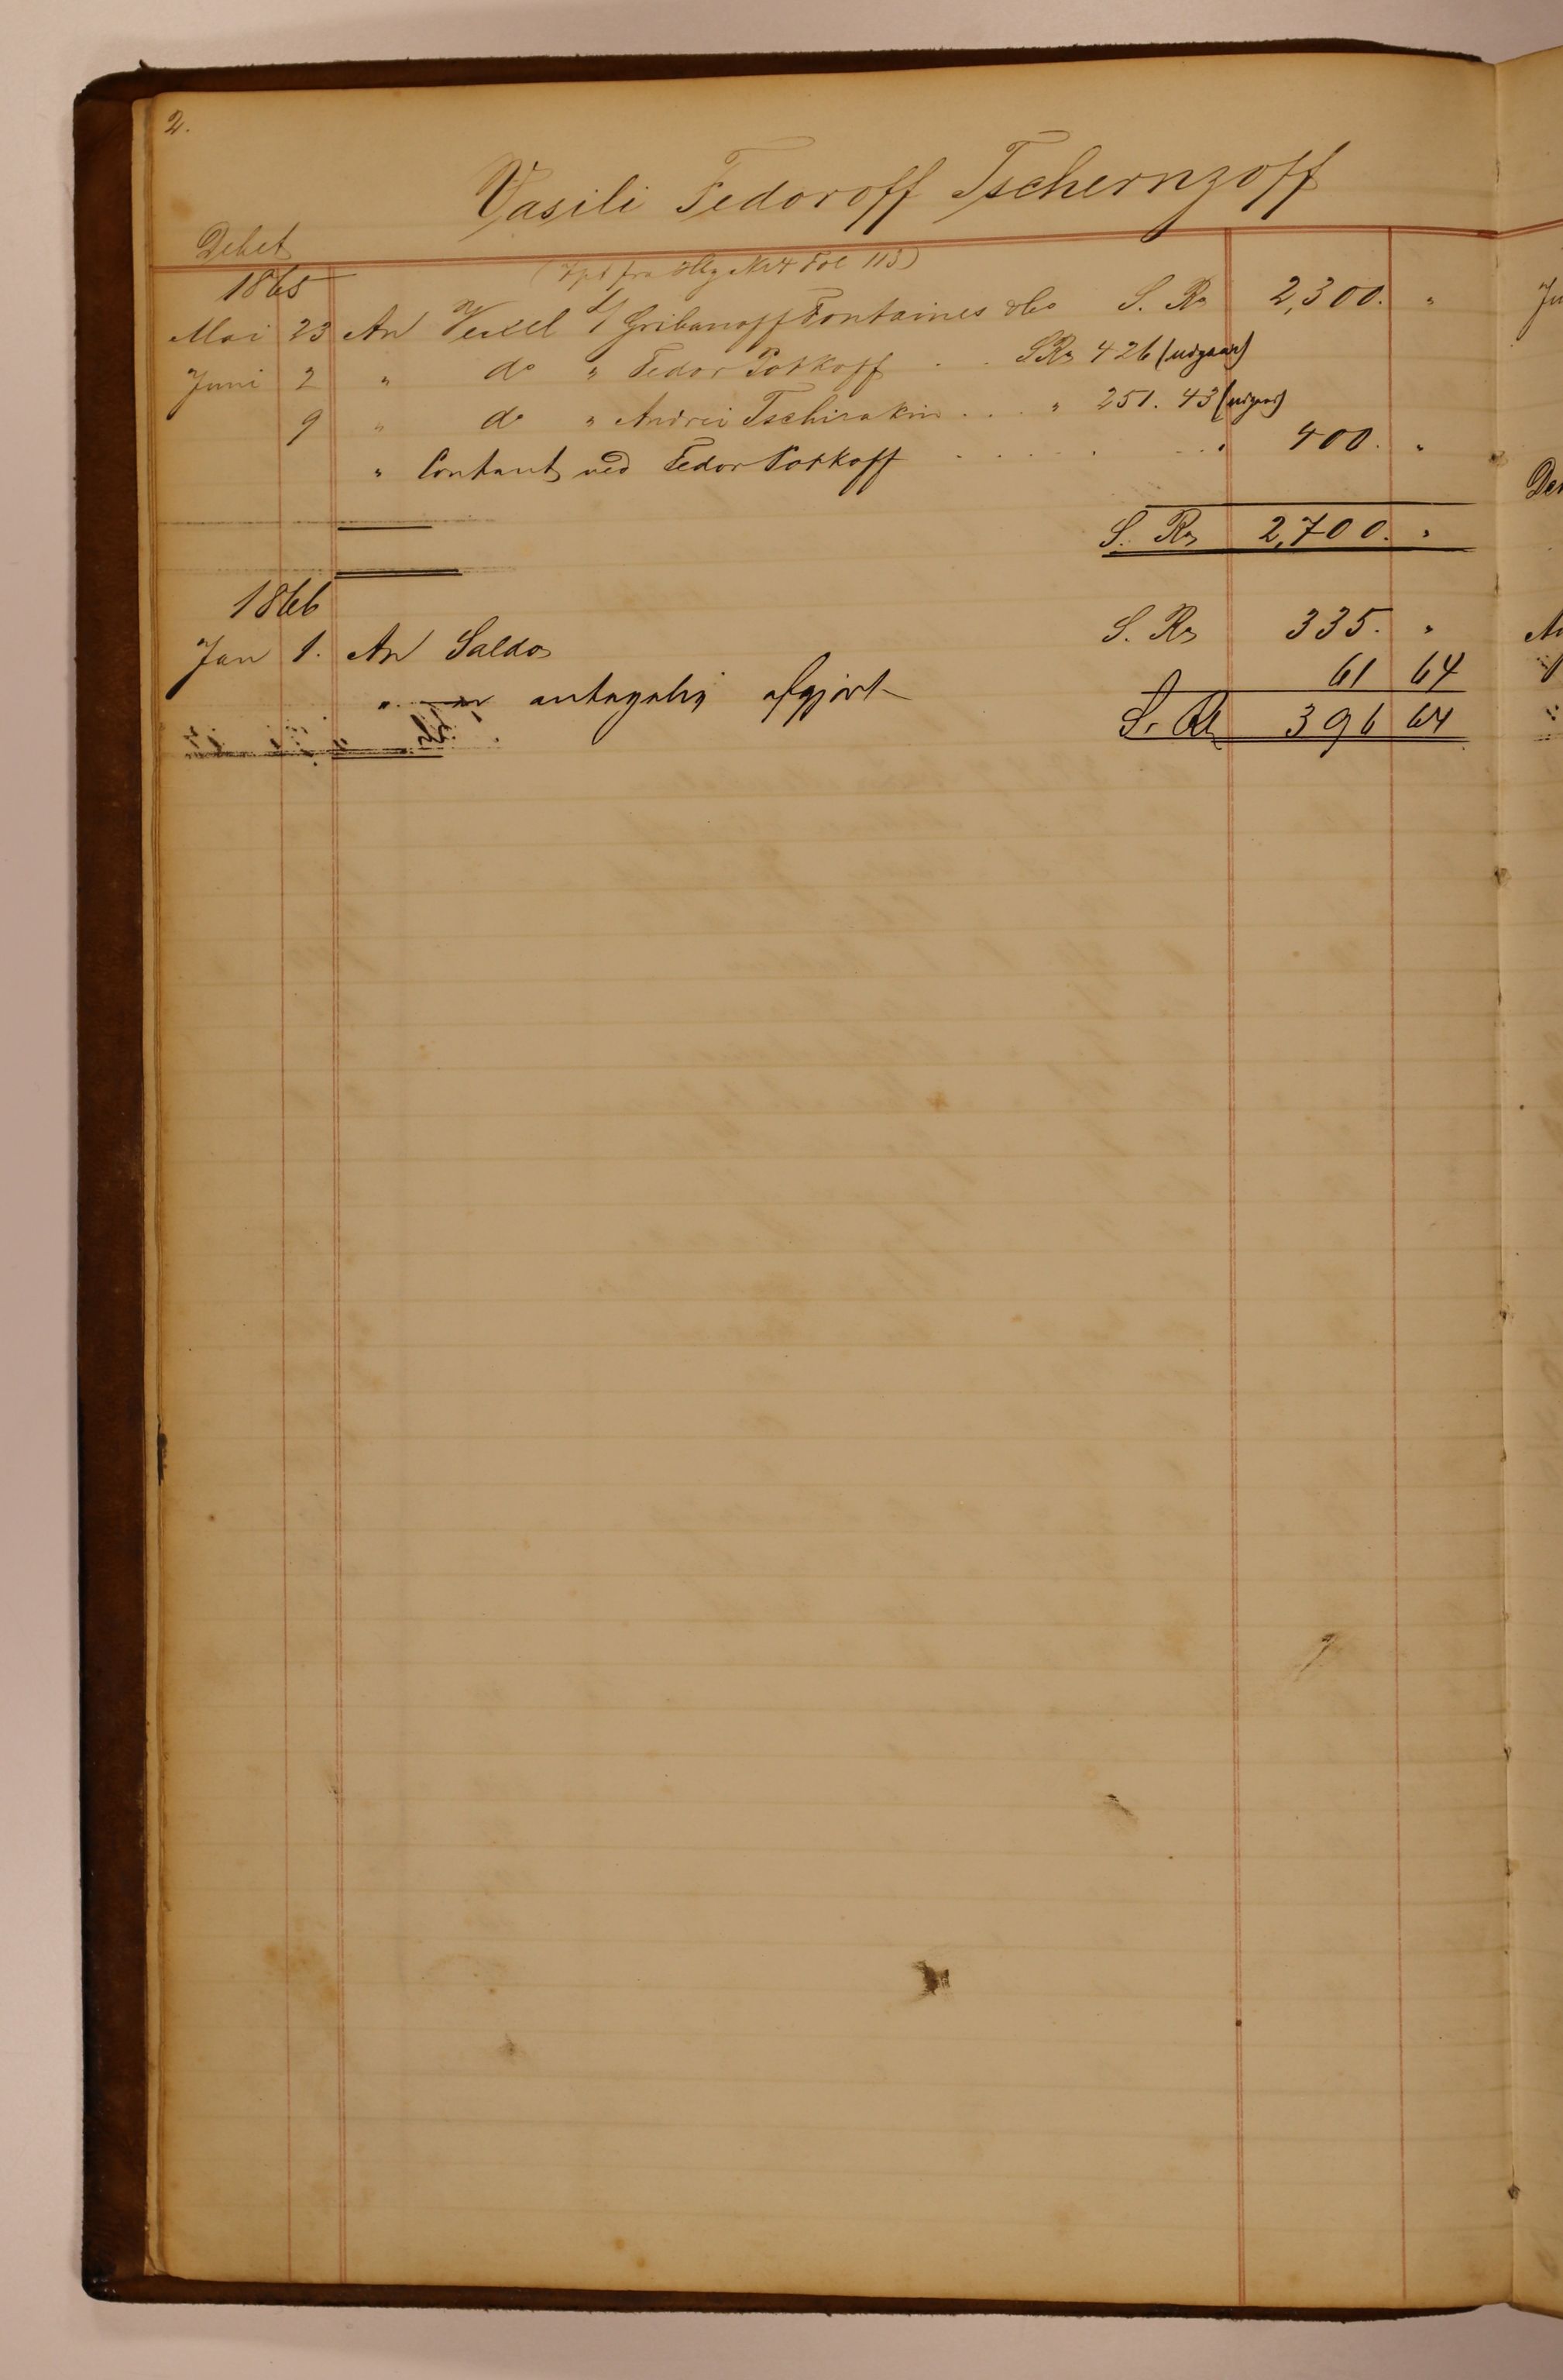 2.
Vasili Fedoroff Tschernzoff
Debet
1865 fra No 4 Fol 113)
Mai 23 An Vexel s/ Gribanoff Fontaines & Co S. Rs 2,300. "
Juni 2 " do " Fedor Potkoff . . SRs 426 (udgaar)
9 " do " Andrei Tschirakin . . . " 251. 43 (udgaar)
" Contant ved Fedor Potkoff . . . . . . . 400. "
S. Rs 2,700. "
1866
Jan 1. An Saldo S. Rs 335. "
" antagelig afgjort 61 64
S. Rs 396 64